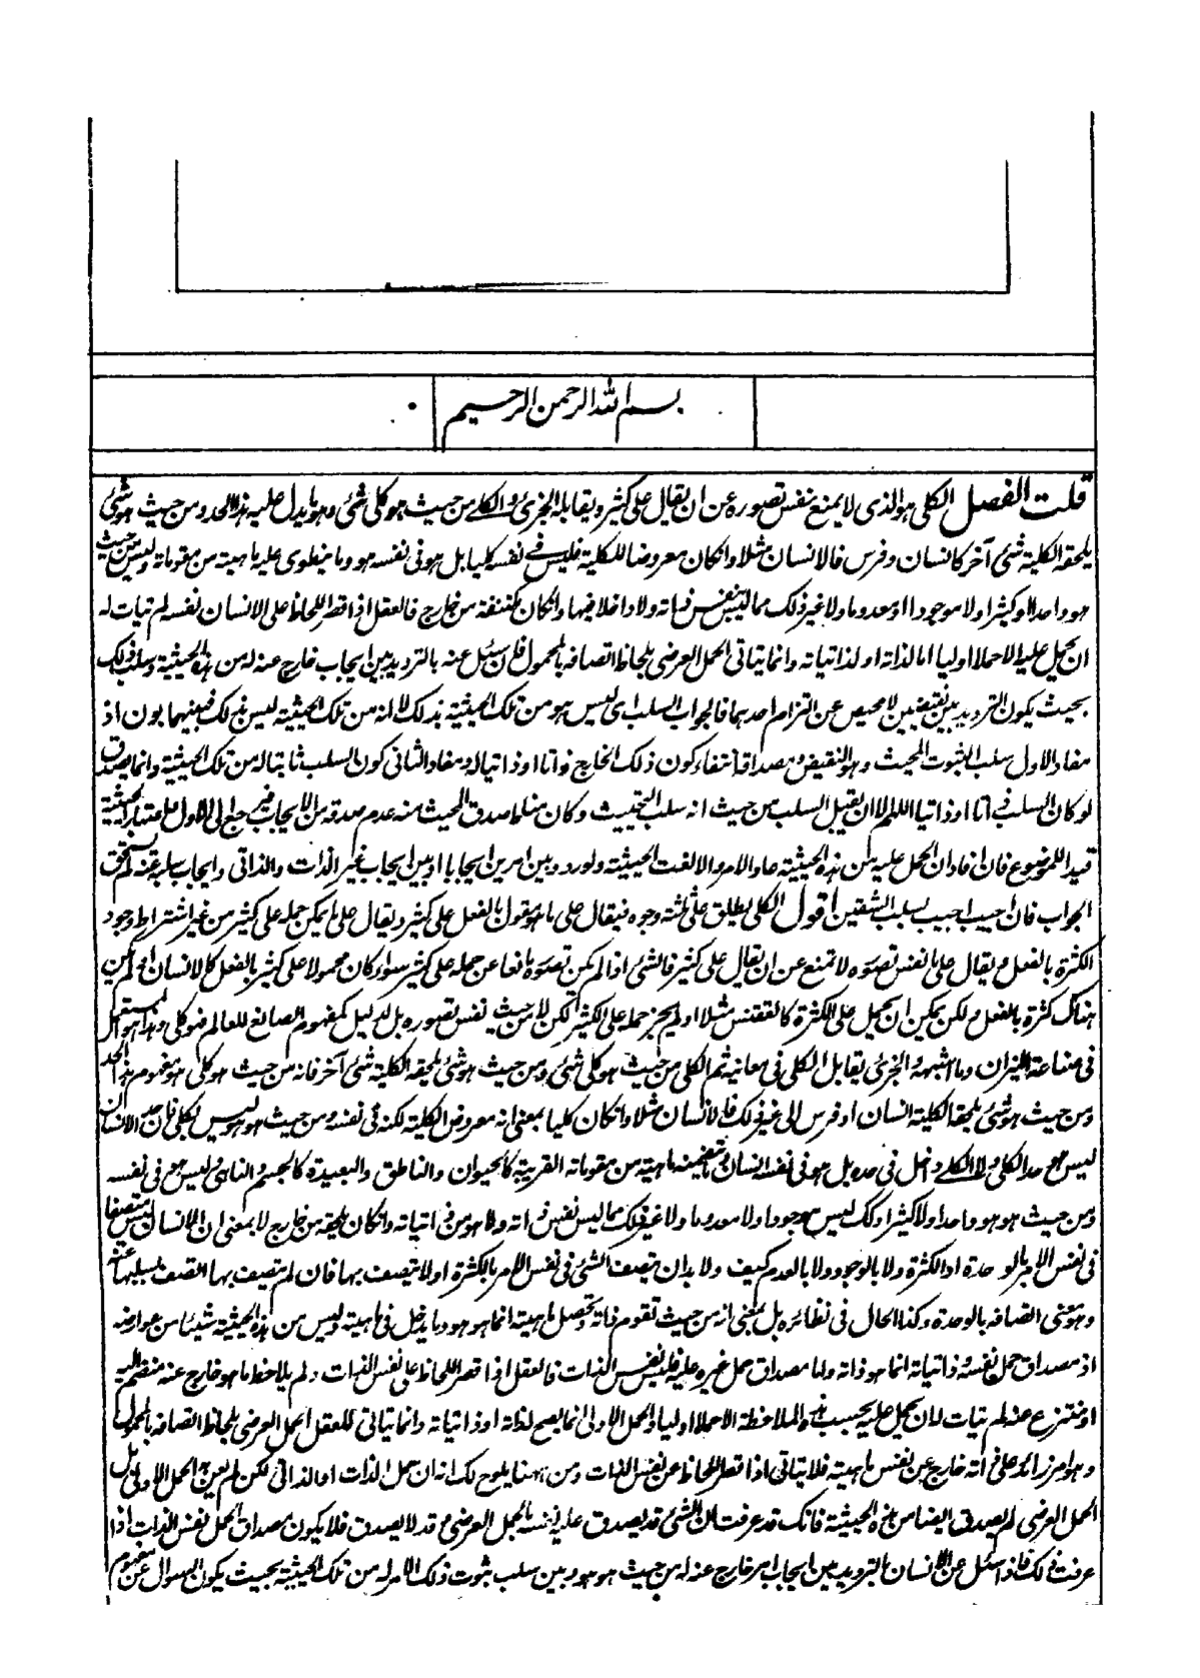 بسم الله الرحمن الرحيم
قلت الفصل الكلي هو الذي لا يمنع نفس تصوره عن ان يقال على كثير ويقابله الجزئي والكلي من حيث هو كلي شئ وهو ما يدل عليه هذا الحد ومن حيث هو شئ
يلحقه الكلية شئ آخر كانسان وفرس فالانسان مثلا وان كان معروضا للكلية فليس في نفسه كليا بل هو في نفسه هو وما ينطوى عليه ماهيته من مقوماته وليس من حيث
هو واحدا او كثيرا ولا موجودا او معدوما ولا غير ذلك مما ليس بنفس ذاته ولا داخلا فيها وان كان مكتنفة من خارج فالعقل اذا قصر اللحاظ على الانسان نفسه لم يتيات له
ان يحمل عليه الاحملا اوليا اما لذاته او لذاتياته وانما يتياتى الحمل العرضي بلحاظ اتصافه بالمحمول فان سئل عنه بالترديد بين ايجاب خارج عنه له من هذه الحيثية وسلب ذلك
بحيث يكون الترديد بين نقيضين لا محيص عن التزام احدهما فالجواب السلب اى ليس هو من تلك الحيثية بذلك لا انه من تلك الحيثية ليس بذلك فبينهما بون اذ
مفاد الاول سلب الثبوت المحيث وهو النقيض ومصداقه انتفاء كون ذلك الخارج ذاتا او ذاتيا له ومفاد الثاني كون السلب ثابتا له من تلك الحيثية وانما يصدق
لو كان السلب ذاتا او ذاتيا اللهم الا ان يقبل السلب من حيث انه سلب التحييث وكان مناط صدق المحيث منه عدم صدقه من الايجاب فيرجع الى الاول
قيدا للموضوع فان افاد ان الحمل عليه من هذه الحيثية عاد الامر والا لغت الحيثية ولو ردد بين امرين ايجابا او بين ايجاب غير الذات والذاتي وايجاب سلبه عنه لم يستحق
الجواب فان اجيب اجيب بسلب الشقين اقول الكلي يطلق على ثلثة وجوه فيقال على ما هو مقول بالفعل على كثير ويقال على ما يمكن حمله على كثير من غير اشتراط وجود
الكثرة بالفعل ويقال على ما نفس تصوره لا تمنع عن ان يقال على كثير فالشئ اذا لم يكن تصوره مانعا عن حمله على كثير سواء كان محمولا على كثير بالفعل كالانسان او لم يكن
هناك كثرة بالفعل ولكن يمكن ان يحمل على الكثرة كالققنس مثلا او لم يجز حمله على الكثير لكن لا من حيث نفس تصوره بل لدليل كمفهوم الصانع للعالم فهو كلي وهذا هو المستعمل
في صناعة الميزان وما اشبهها والجزئي يقابل الكلي في معانيه ثم الكلي من حيث هو كلي شئ ومن حيث هو شئ يلحقه الكلية شئ آخر فانه من حيث هو كلي هو مفهوم هذا الحد
ومن حيث هو شئ يلحقه الكلية انسان او فرس الى غير ذلك فالانسان مثلا وان كان كليا بمعنى انه معروض الكلية لكنه في نفسه ومن حيث هو هو ليس بكلي فان حد الانسان
ليس هو حد الكلي ولا الكلي داخل في حده بل هو في نفسه انسان وما يتضمنه ماهيته من مقوماته القريبة كالحيوان والناطق والبعيدة كالجسم والنامى وليس هو في نفسه
ومن حيث هو هو واحدا ولا كثيرا وكذلك ليس موجودا ولا معدوما ولا غير ذلك مما ليس نفس ذاته ولا هو من ذاتياته وان كان يلحقه من خارج لا بمعنى ان الانسان ليس متصفا
في نفس الامر بالوحدة او الكثرة ولا بالوجود ولا بالعدم كيف ولا بد ان يتصف الشئ في نفس الامر بالكثرة او لا يتصف بها فان لم يتصف بها اتصف بسلبها عنه
وهو معنى اتصافه بالوحدة وكذا الحال في نظائره بل بمعنى انه من حيث تقوم ذاته وتحصل ماهيته انما هو هو وما يدخل في ماهيته وليس من هذه الحيثية شيئا من عوارضه
اذ مصداق حمل نفسه وذاتياته انما هو ذاته واما مصداق حمل غيره عليه فليس نفس الذات فالعقل اذا قصر اللحاظ على نفس الذات ولم يلاحظ ما هو خارج عنه منضم اليه
او منتزع عنه لم يتيات لان يحمل عليه بحسب هذه الملاحظة الاحملا اوليا والحمل الاولى انما يصح لذاته او ذاتياته وانما يتياتى للعقل الحمل العرضي بلحاظ اتصافه بالمحمول
وهو امر زائد على ذاته خارج عن نفس ماهيته فلا يتياتى اذا قصر اللحاظ عن نفس الذات ومن ههنا يلوح لك انه ان حمل الذات او الذاتي لكن لم يعن به الحمل الاولى بل
الحمل العرضي لم يصدق ايضا من هذه الحيثية فانك قد عرفت ان الشئ قد يصدق على نفسه بالحمل العرضي وقد لا يصدق فلا يكون مصداق الحمل نفس الذات اذا
عرفت ذلك فاذا سئل عن الانسان بالترديد بين ايجاب امر خارج عنه له من حيث هو هو وبين سلب ثبوت ذلك الامر له من تلك الحيثية بحيث يكون السوال عن مفهوم